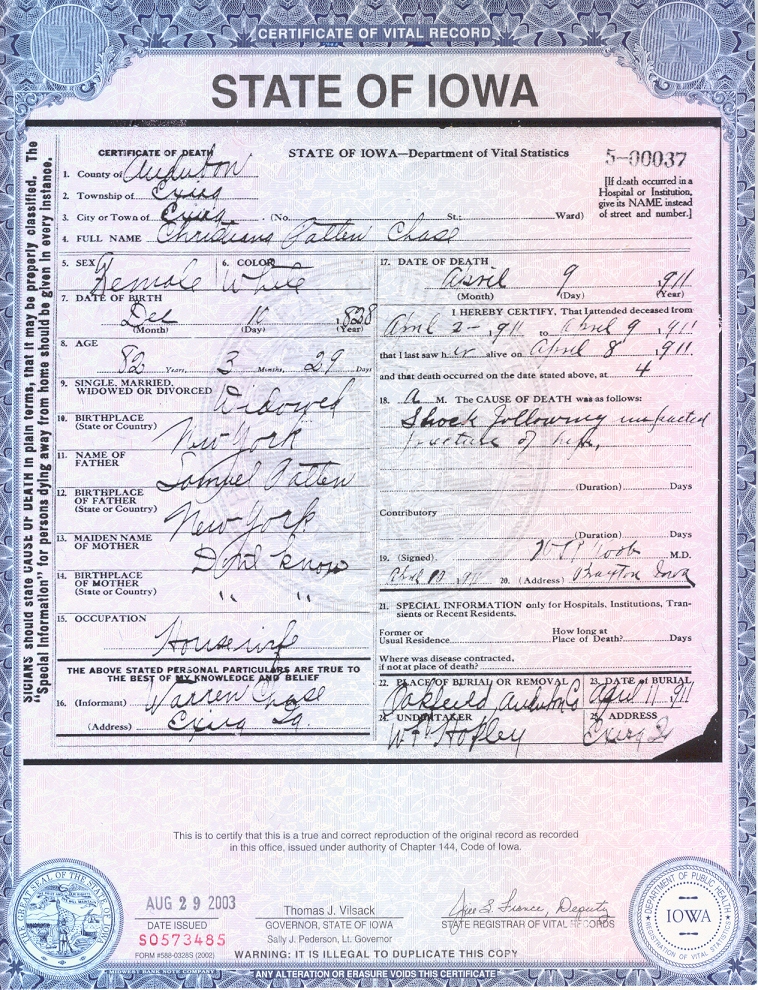 CERTIFICATE OF VITAL RECORD
STATE OF IOWA
SICIANS should state CAUSE OF DEATH in plain terms, that it may be properly classified. The
"Special Information" for persons dying away from home should be given in every instance.
CERTIFICATE OF DEATH
STATE OF IOWA—Department of Vital Statistics
5-00037
1. County of Audubon
2. Township of Exira
3. City or Town of Exira . (No. St.; Ward)
[If death occurred in a Hospital or Institution, give its NAME instead of street and number.]
4. FULL NAME Christiana Patten Chase
5. SEX Female
6. COLOR White
7. DATE OF BIRTH
Dec 10 1828
(Month) (Day) (Year)
8. AGE
82 Years, 3 Months, 29 Days
9. SINGLE, MARRIED, WIDOWED OR DIVORCED Widowed
10. BIRTHPLACE (State or Country) New York
11. NAME OF FATHER Samuel Patten
12. BIRTHPLACE OF FATHER (State or Country) New York
13. MAIDEN NAME OF MOTHER Dont know
14. BIRTHPLACE OF MOTHER (State or Country) " "
15. OCCUPATION
Housewife
THE ABOVE STATED PERSONAL PARTICULARS ARE TRUE TO
THE BEST OF MY KNOWLEDGE AND BELIEF
16. (Informant) Warren Chase
(Address) Exira Ia.
17. DATE OF DEATH
April 9 1911
(Month) (Day) (Year)
I HEREBY CERTIFY, That I attended deceased from
April 2- 1911 to April 9 1911
that I last saw her alive on April 8 1911
and that death occurred on the date stated above, at 4
18. A M. The CAUSE OF DEATH was as follows:
Shock following impacted
fracture of hip,
(Duration) Days
Contributory
(Duration) Days
19. (Signed) M.D.
April 10, 1911 20. (Address) Brayton Iowa
21. SPECIAL INFORMATION only for Hospitals, Institutions, Transients or Recent Residents.
Former or Usual Residence How long at Place of Death? Days
Where was disease contracted, if not at place of death?
22. PLACE OF BURIAL OR REMOVAL
Oakfield, Audubon Co
23. DATE of BURIAL
April 11 1911
24. UNDERTAKER
Hopley
25. ADDRESS
Exira Ia
This is to certify that this is a true and correct reproduction of the original record as recorded
in this office, issued under authority of Chapter 144, Code of Iowa.
THE GREAT SEAL OF THE STATE OF IOWA
AUG 29 2003
DATE ISSUED
S0573485
FORM #588-0328S (2002)
Thomas J. Vilsack
GOVERNOR, STATE OF IOWA
Sally J. Pederson, Lt. Governor
Jill S. France, Deputy
STATE REGISTRAR OF VITAL RECORDS
DEPARTMENT OF PUBLIC HEALTH
IOWA
REGISTRATION OF VITAL STATISTICS
WARNING: IT IS ILLEGAL TO DUPLICATE THIS COPY
MIDWEST BANK NOTE COMPANY
ANY ALTERATION OR ERASURE VOIDS THIS CERTIFICATE